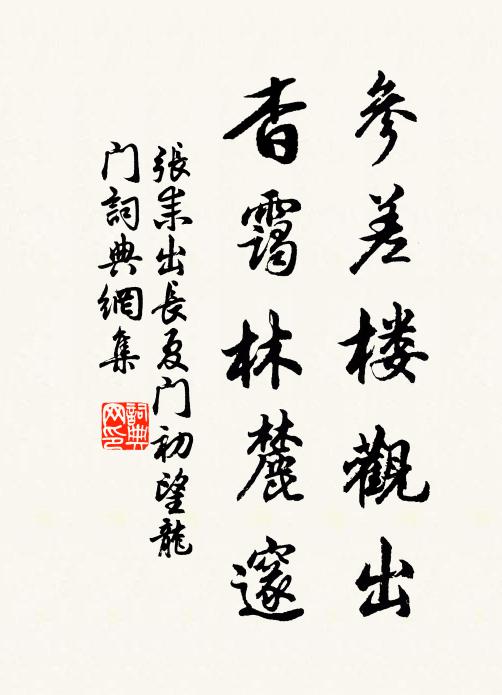 參差楼觀出
杳靄林麓邃
張耒出長夏门初望龍
门詞典網集
詞典
网印